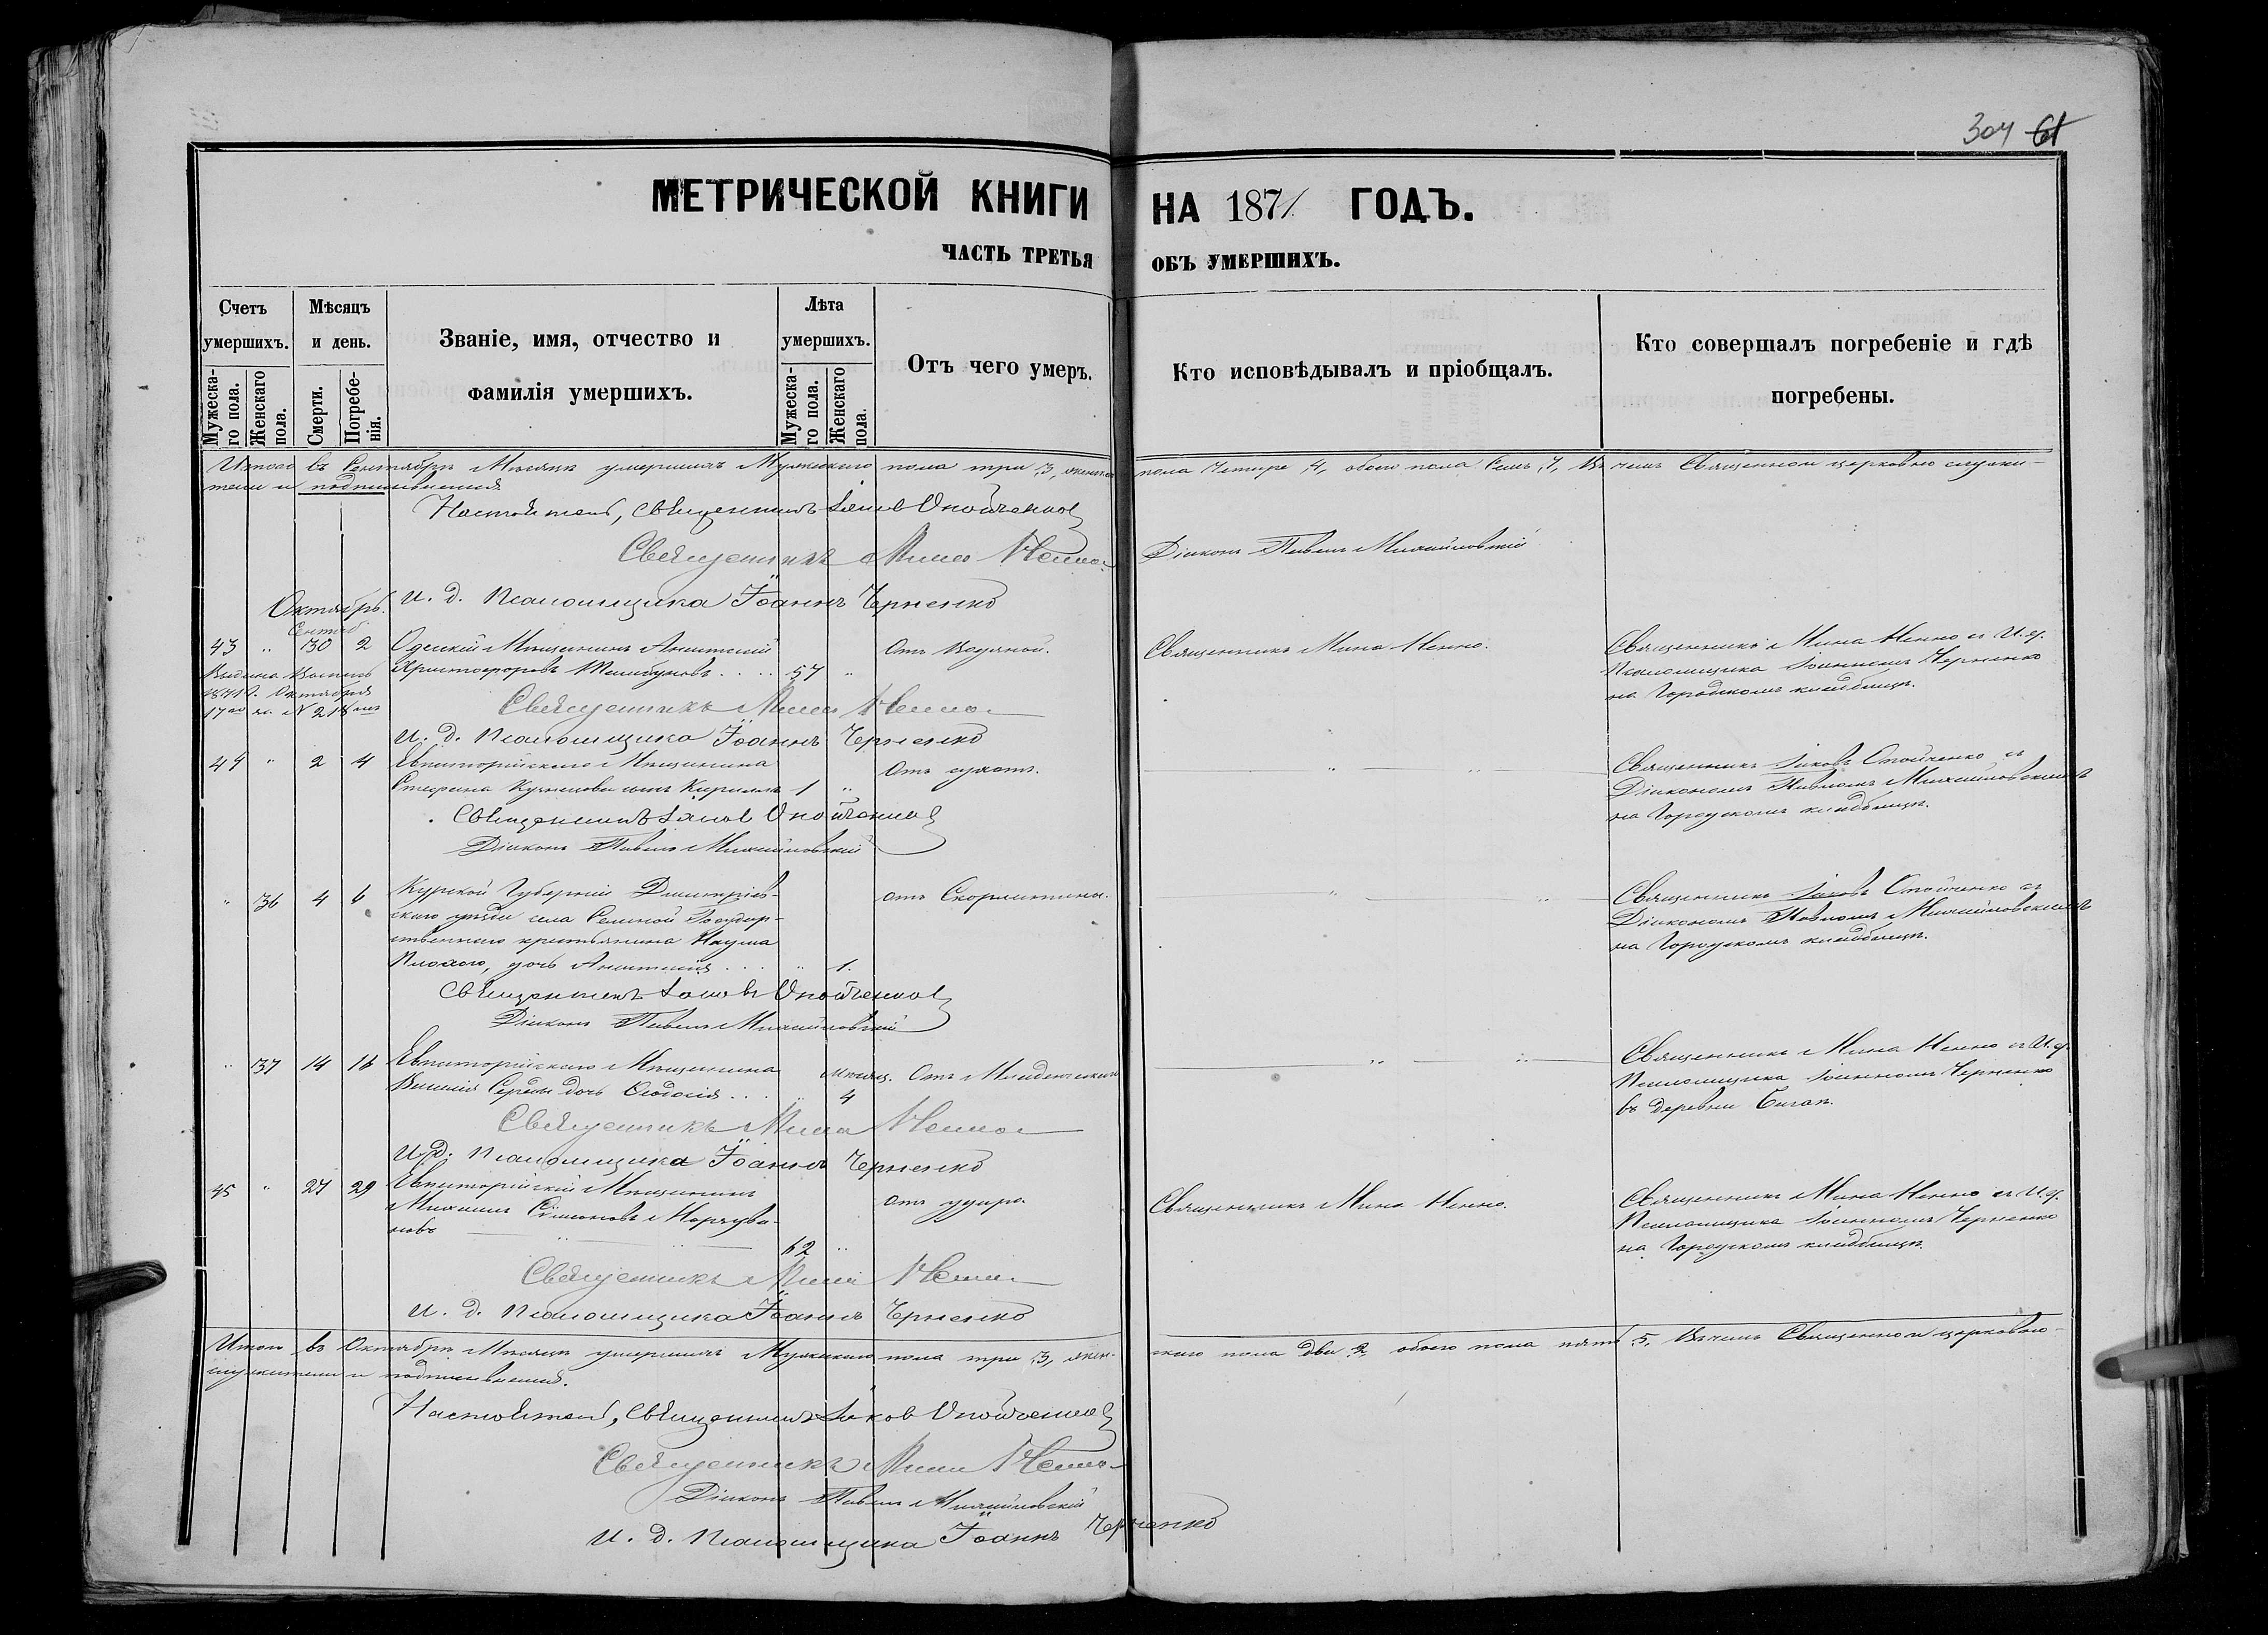 304 61
МЕТРИЧЕСКОЙ КНИГИ НА 1871 ГОДЪ.
ЧАСТЬ ТРЕТЬЯ ОБЪ УМЕРШИХЪ.
Счетъ умершихъ.
Мужеска-го пола.
Женскаго пола.
Мѣсяцъ и день.
Смерти.
Погребе-нія.
Званіе, имя, отчество и фамилія умершихъ.
Лѣта умершихъ.
Мужеска-го пола.
Женскаго пола.
Отъ чего умеръ.
Кто исповѣдывалъ и пріобщалъ.
Кто совершалъ погребеніе и гдѣ погребены.
Итого въ Сентябрѣ Мѣсяцѣ умершихъ Мужескаго пола три 3, женска пола четыре 4, обоего пола семь 7, Въ чемъ Священно и церковно служи-
тели и подписываемся
Настоятель, Священникъ Іаковъ
Священникъ Мина Ненно
Діаконъ Павелъ Михайловскій
И. д. Псаломщика Іоаннъ Черненко
Октябрь.
Сентяб
43 " 30 2 Одесскій Мѣщанинъ Анастасій
Христофоровъ 57 "
Отъ Водяной.
Священникъ Мина Ненно.
Священникъ Мина Ненно и И. д.
Псаломщика Іоанномъ Черненко
на Городскомъ кладбищѣ.
1871 г. Октября
17го за № 218мъ
Священникъ Мина Ненно
И. д. Псаломщика Іоаннъ Черненко
44 " 2 4 Евпаторійскаго Мѣщанина
Стефана Кузнецова сынъ Кириллъ 1 "
Отъ сухотъ.
" "
Священникъ Іаковъ съ
Діакономъ Павломъ Михайловскимъ
на Городскомъ кладбищѣ.
Священникъ Іаковъ
Діаконъ Павелъ Михайловскій
" 36 4 6 Курской Губерніи Дмитріев-
скаго уѣзда села Государ-
ственнаго крестьянина Наума
дочь Анастасія " 1.
отъ Скорлатины.
" "
Священникъ Іаковъ съ
Діакономъ Павломъ Михайловскимъ
на Городскомъ кладбищѣ.
Священникъ Іаковъ
Діаконъ Павелъ Михайловскій
" 37 14 16 Евпаторійскаго Мѣщанина
Василія Середы дочь Ѳеодосія " Мѣсяц. 4
Отъ
" "
Священникъ Мина Ненно и И. д.
Псаломщика Іоанномъ Черненко
въ деревни
Священникъ Мина Ненно
И. д. Псаломщика Іоаннъ Черненко
45 " 27 29 Евпаторійскій Мѣщанинъ
Михаилъ Симоновъ
новъ 62 "
отъ удара.
Священникъ Мина Ненно.
Священникъ Мина Ненно и И. д.
Псаломщика Іоанномъ Черненко
на Городскомъ кладбищѣ.
Священникъ Мина Ненно
И. д. Псаломщика Іоаннъ Черненко
Итого въ Октябрѣ Мѣсяцѣ умершихъ Мужескаго пола три 3, жен-скаго пола два 2, обоего пола пять 5, Въ чемъ Священно и церковно-
служители и подписываемся.
Настоятель, Священникъ Іаковъ
Священникъ Мина Ненно
Діаконъ Павелъ Михайловскій
И. д. Псаломщика Іоаннъ Черненко